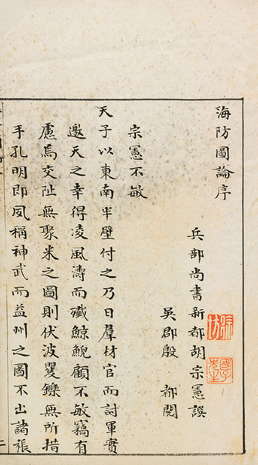 海防圖論序
兵部尚書新都胡宗憲譔
吳郡殷 都閱
宗憲不敏
天子以東南半壁付之乃日羣材官而討軍實
邀天之幸得凌風濤而殲鯨鯢顧不敏竊有
慮焉交阯無聚米之圖則伏波矍鑠無所措
手孔明即夙稱神武而益州之圖不出諸張